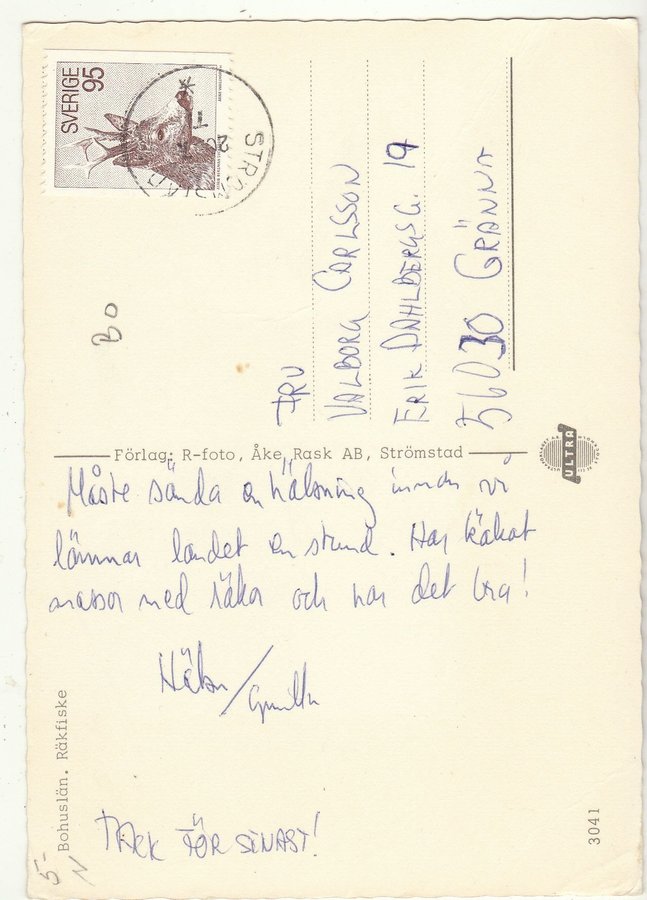 SVERIGE 95
BO
FRU
VALBORG CARLSSON
ERIK DAHLBERGSG. 19
56030 GRÄNNA
Förlag: R-foto, Åke Rask AB, Strömstad
ULTRA
Måste sända en hälsning innan vi
lämnar landet en stund. Har käkat
massor med räkor och har det bra!
Hälsn/Gunilla
TACK FÖR SENAST!
Bohuslän. Räkfiske
3041
5:-